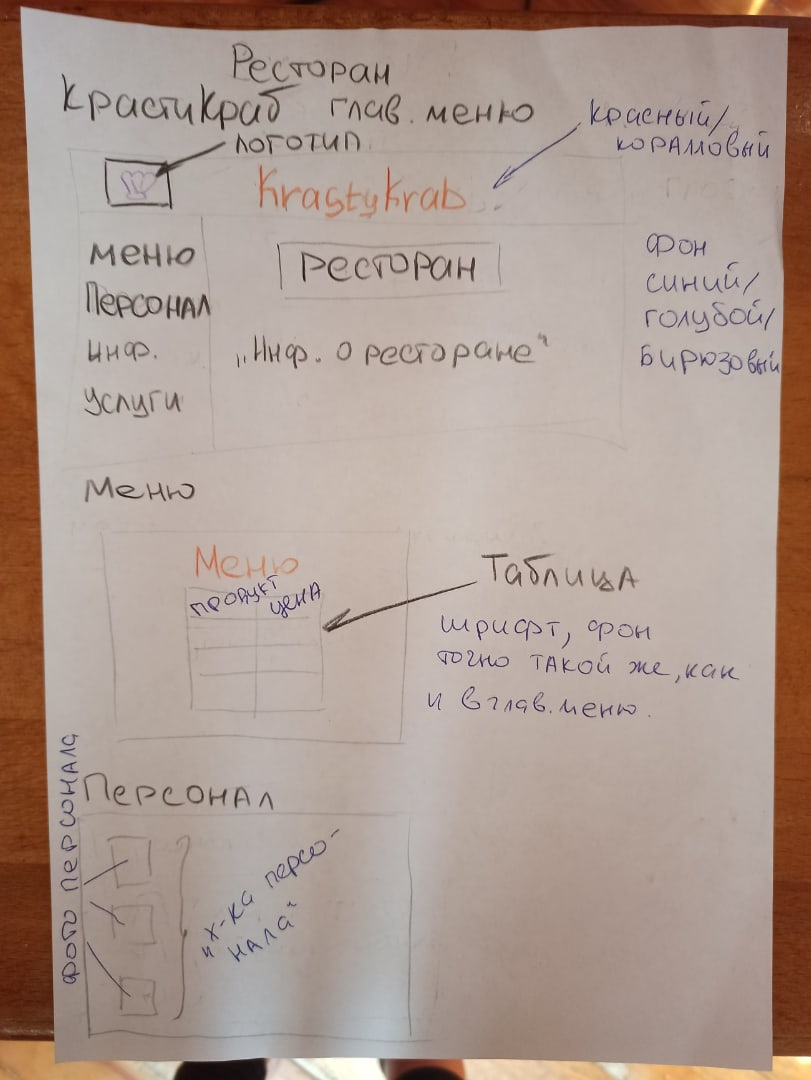 Ресторан
КрастиКраб глав. меню
логотип
красный/
коралловый
KrastyKrab
меню
Персонал
инф.
услуги
Ресторан
„Инф. о ресторане"
фон
синий/
голубой/
бирюзовый
Меню
Меню
продукт цена
Таблица
шрифт, фон
точно такой же, как
и в глав. меню.
Персонал
фото персонала
„х-ка персо-
нала"